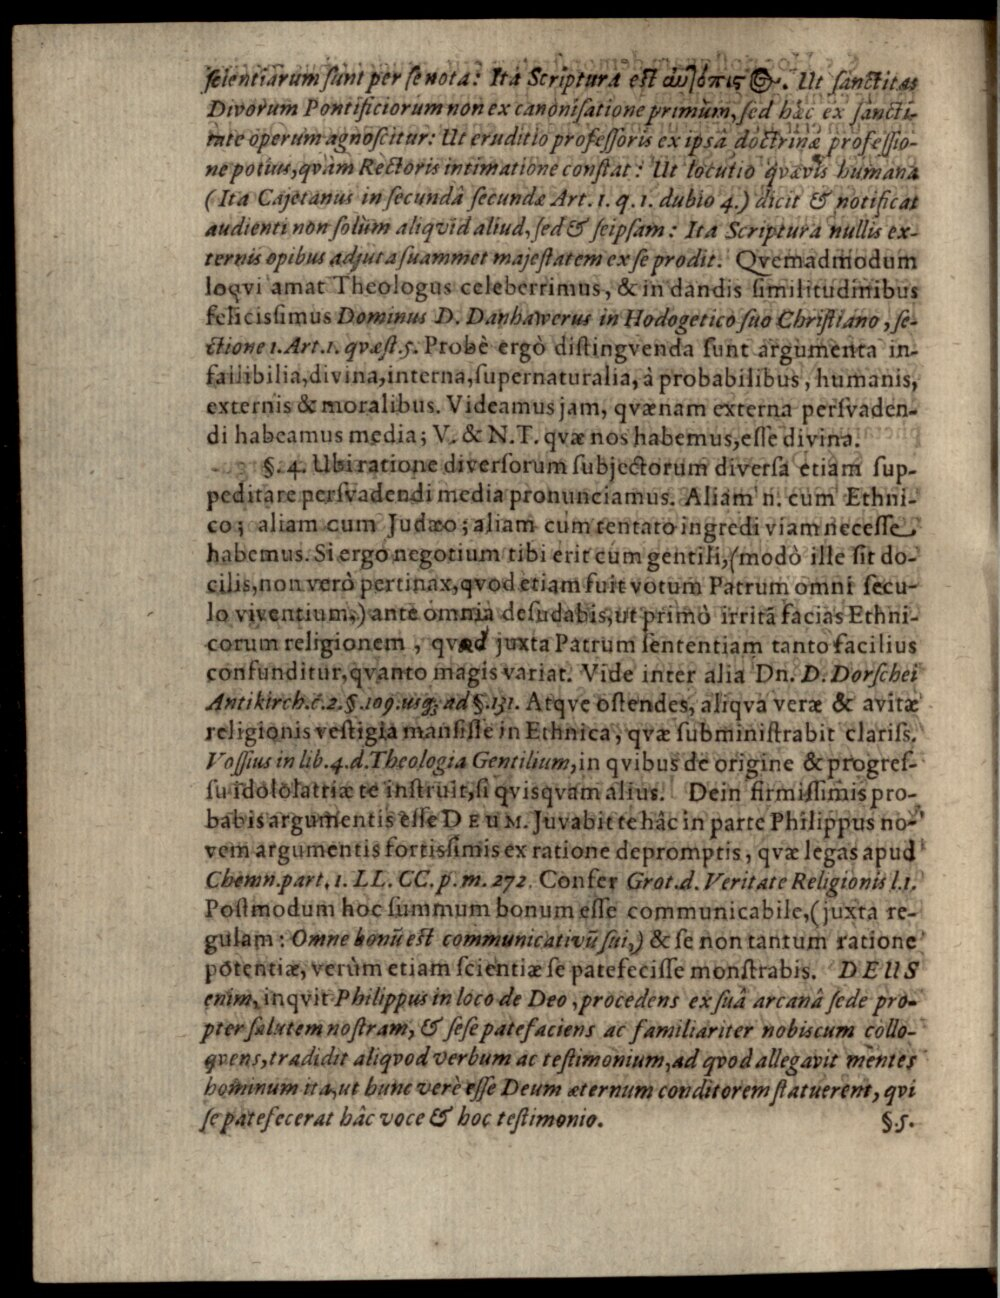 scientiarum sunt per se nota: Ita Scriptura est αὐτόπιςος. Ut sanctitas
Divorum Pontificiorum non ex canonisatione primùm, sed hâc ex sancti-
tate operum agnoscitur: Ut eruditio professoris ex ipsâ doctrinæ professio-
ne potius, qvàm Rectoris intimatione constat: Ut locutio qvævis humana
(Ita Cajetanus in secundâ secundæ Art. 1. q. 1. dubio 4.) dicit & notificat
audienti non solùm aliqvid aliud, sed & seipsam: Ita Scriptura nullis ex-
ternis opibus adjuta suammet majestatem ex se prodit. Qvemadmodum
loqvi amat Theologus celeberrimus, & in dandis similitudinibus
felicissimus Dominus D. Danhawerus in Hodogetico suo Christiano, se-
ctione 1. Art. 1. qvæst. 5. Probè ergò distingvenda sunt argumenta in-
fallibilia, divina, interna, supernaturalia, à probabilibus, humanis,
externis & moralibus. Videamus jam, qvænam externa persvaden-
di habeamus media; V. & N.T. qvæ nos habemus, esse divina.
§. 4. Ubi ratione diversorum subjectorum diversa etiam sup-
peditare persvadendi media pronunciamus. Aliam n. cum Ethni-
co; aliam cum Judæo; aliam cum tentato ingredi viam necesse
habemus. Si ergo negotium tibi erit cum gentili, (modò ille sit do-
cilis, non verò pertinax, qvod etiam fuit votum Patrum omni secu-
lo viventium,) ante omnia desudabis, ut primò irritã facias Ethni-
corum religionem, qvæd juxta Patrum sententiam tanto facilius
confunditur, qvanto magis variat. Vide inter alia Dn. D. Dorschei
Antikirch. c. 2. §. 109. usq; ad §. 131. Atqve ostendes, aliqva veræ & avitæ
religionis vestigia mansisse in Ethnica, qvæ subministrabit clariss.
Vossius in lib. 4. d. Theologia Gentilium, in qvibus de origine & progres-
su idololatriæ te instruit, si qvisqvam alius. Dein firmissimis pro-
babis argumentis esse DEUM. Juvabit te hâc in parte Philippus no-
vem argumentis fortissimis ex ratione depromptis, qvæ legas apud
Chemn. part. 1. LL. CC. p. m. 272. Confer Grot. d. Veritate Religionis l. 1.
Postmodum hoc summum bonum esse communicabile, (juxta re-
gulam: Omne bonũ est communicativũ sui,) & se non tantum ratione
potentiæ, verùm etiam scientiæ se patefecisse monstrabis. DEUS
enim, inqvit Philippus in loco de Deo, procedens ex suâ arcanâ sede pro-
pter salutem nostram, & sese patefaciens ac familiariter nobiscum collo-
qvens, tradidit aliqvod verbum ac testimonium, ad qvod allegavit mentes
hominum ita, ut hunc verè esse Deum æternum conditorem statuerent, qvi
se patefecerat hâc voce & hoc testimonio.
§. 5.